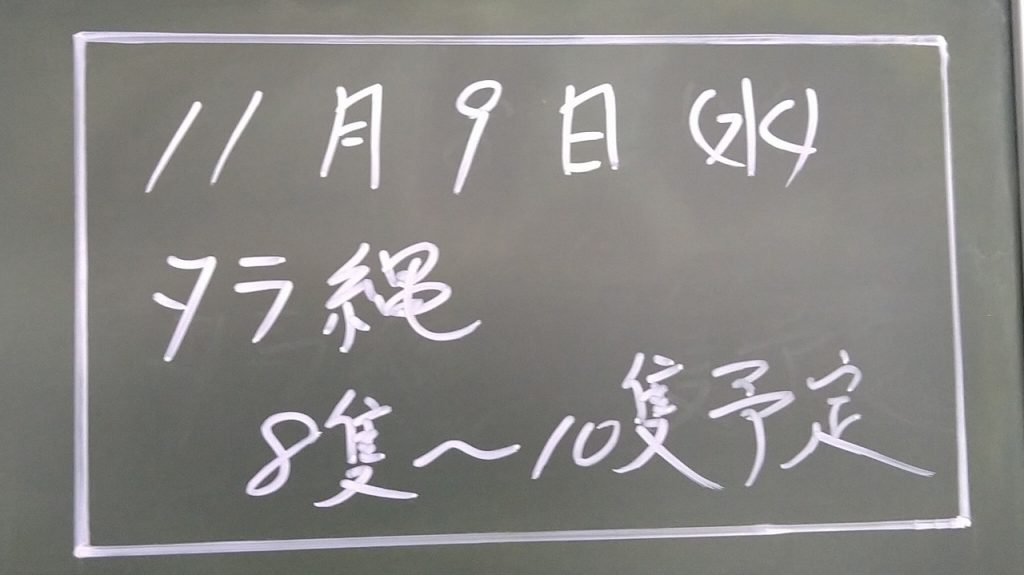 11月9日(水)
タラ縄
8隻～10隻予定